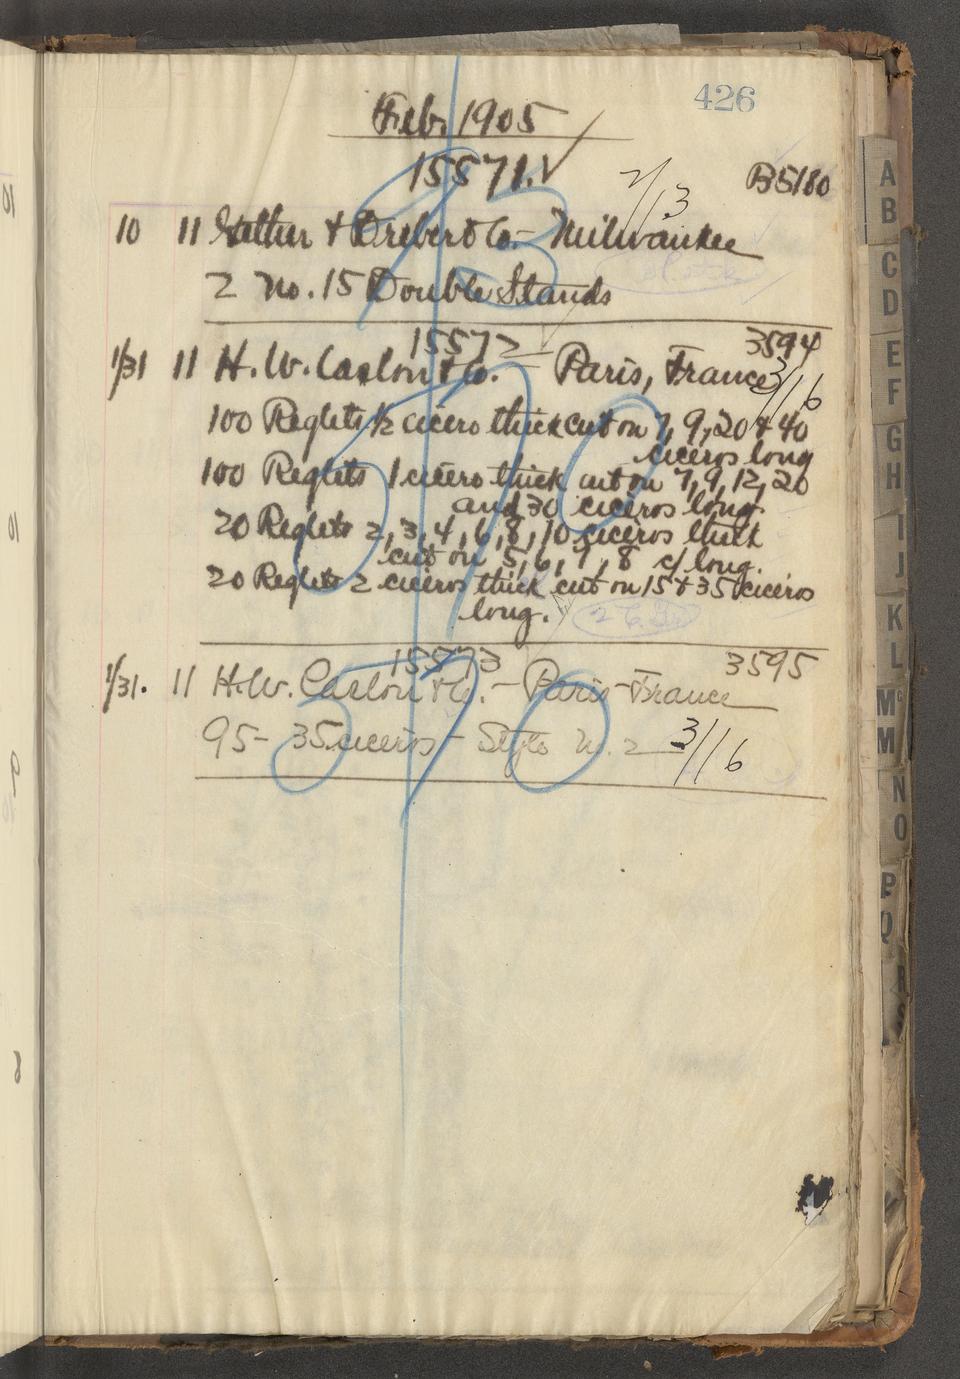 426
Feb. 1905
15571. ✓
2/13
B5180
10 11 & Co. - Milwaukee
2 No. 15 Double Stands
15572
3594
1/31 11 H. W. Caslon & Co. - Paris, France
3/16
100 Reglets ½ cicero thick cut on 7, 9, 20 & 40
ciceros long
100 Reglets 1 cicero thick cut on 7, 9, 12, 20
and 30 ciceros long
20 Reglets 2, 3, 4, 6, 8, 10 ciceros thick
cut on 5, 6, 7, 8 c/ long.
20 Reglets 2 ciceros thick cut on 15 & 35 ciceros
long.
15573
3595
1/31. 11 H. W. Caslon & Co. - Paris - France
95 - 35 ciceros - Style No. 2
3/16
A
B
C
D
E
F
G
H
I
J
K
L
Mc
M
N
O
P
Q
R
S